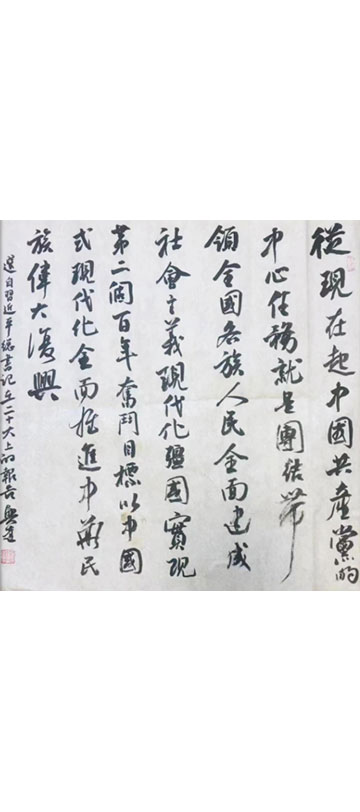 從現在起中國共產黨的
中心任務就是團結帶
領全國各族人民全面建成
社會主義現代化强國實現
第二個百年奮鬥目標以中國
式現代化全面推進中華民
族偉大復興
選自習近平總書記在二十大上的報告